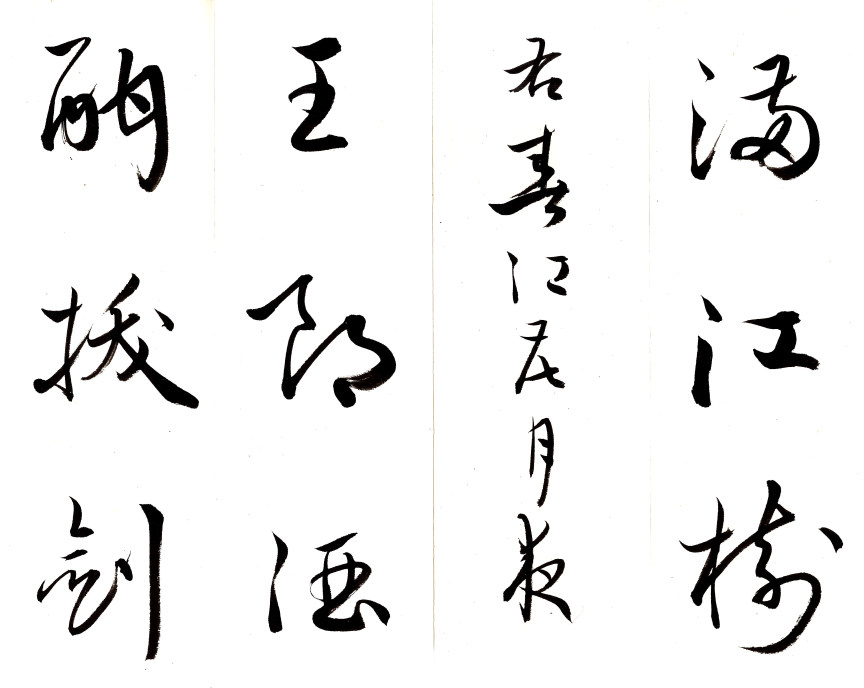 滿江樹
右春江花月夜
王郎酒
酣拔劍